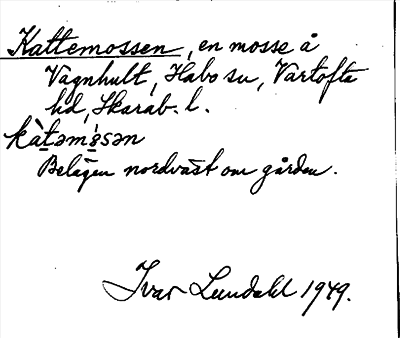 Kattemossen, en mosse å
Vagnhult, Habo sn, Vartofta
hd, Skarab. l.
kàtəmɵ́sən
Belägen nordväst om gården.
Ivar Lundahl 1949.